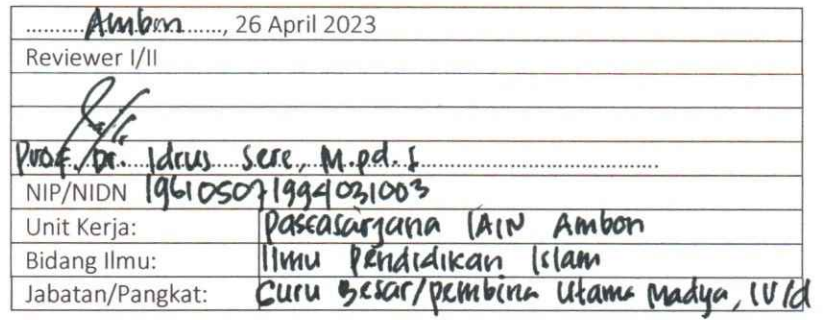 ..........Ambon......, 26 April 2023
Reviewer I/II
Prof. Dr. Idrus Sere, M.pd.I
NIP/NIDN 196105071994031003
Unit Kerja: Pascasarjana IAIN Ambon
Bidang Ilmu: Ilmu Pendidikan Islam
Jabatan/Pangkat: Guru Besar/pembina Utama Madya, IV/d